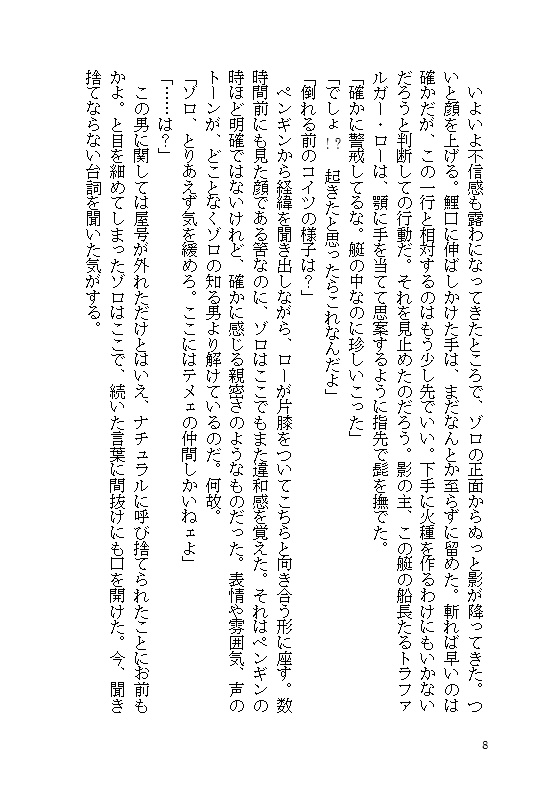 いよいよ不信感も露わになってきたところで、ゾロの正面からぬっと影が降ってきた。つ
いと顔を上げる。鯉口に伸ばしかけた手は、まだなんとか至らずに留めた。斬れば早いのは
確かだが、この一行と相対するのはもう少し先でいい。下手に火種を作るわけにもいかない
だろうと判断しての行動だ。それを見止めたのだろう。影の主、この艇の船長たるトラファ
ルガー・ローは、顎に手を当てて思案するように指先で髭を撫でた。
「確かに警戒してるな。艇の中なのに珍しいこった」
「でしょ！？　起きたと思ったらこれなんだよ」
「倒れる前のコイツの様子は？」
ペンギンから経緯を聞き出しながら、ローが片膝をついてこちらと向き合う形に座す。数
時間前にも見た顔である筈なのに、ゾロはここでもまた違和感を覚えた。それはペンギンの
時ほど明確ではないけれど、確かに感じる親密さのようなものだった。表情や雰囲気、声の
トーンが、どことなくゾロの知る男より解けているのだ。何故。
「ゾロ、とりあえず気を緩めろ。ここにはテメェの仲間しかいねェよ」
「……は？」
この男に関しては屋号が外れただけとはいえ、ナチュラルに呼び捨てられたことにお前も
かよ。と目を細めてしまったゾロはここで、続いた言葉に間抜けにも口を開けた。今、聞き
捨てならない台詞を聞いた気がする。
8